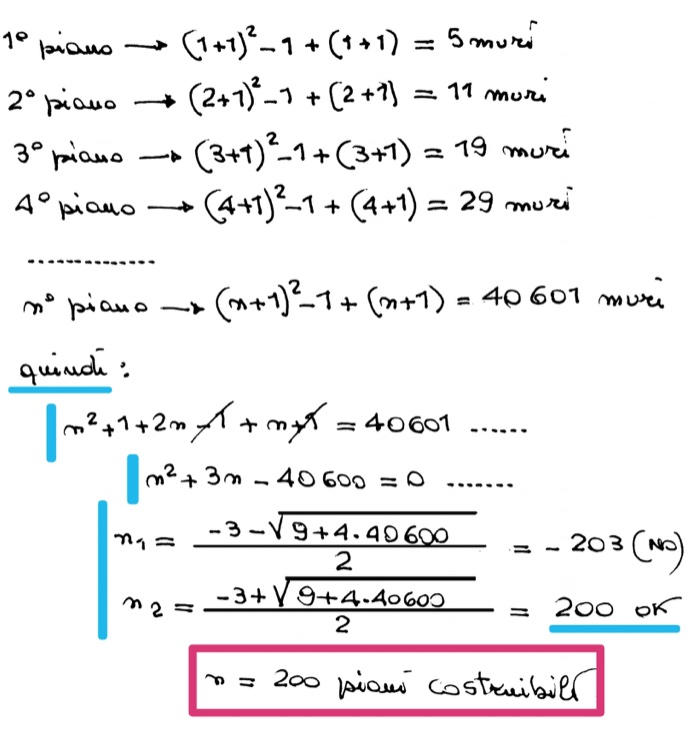 1° piano → (1+1)²-1+(1+1) = 5 muri
2° piano → (2+1)²-1+(2+1) = 11 muri
3° piano → (3+1)²-1+(3+1) = 19 muri
4° piano → (4+1)²-1+(4+1) = 29 muri
.............
n° piano → (n+1)²-1+(n+1) = 40601 muri
quindi :
n²+1+2n-1+n+1 = 40601 ......
n²+3n-40600=0 .......
n₁ = (-3-√(9+4·40600))/2 = -203 (NO)
n₂ = (-3+√(9+4·40600))/2 = 200 OK
n = 200 piani costruibili